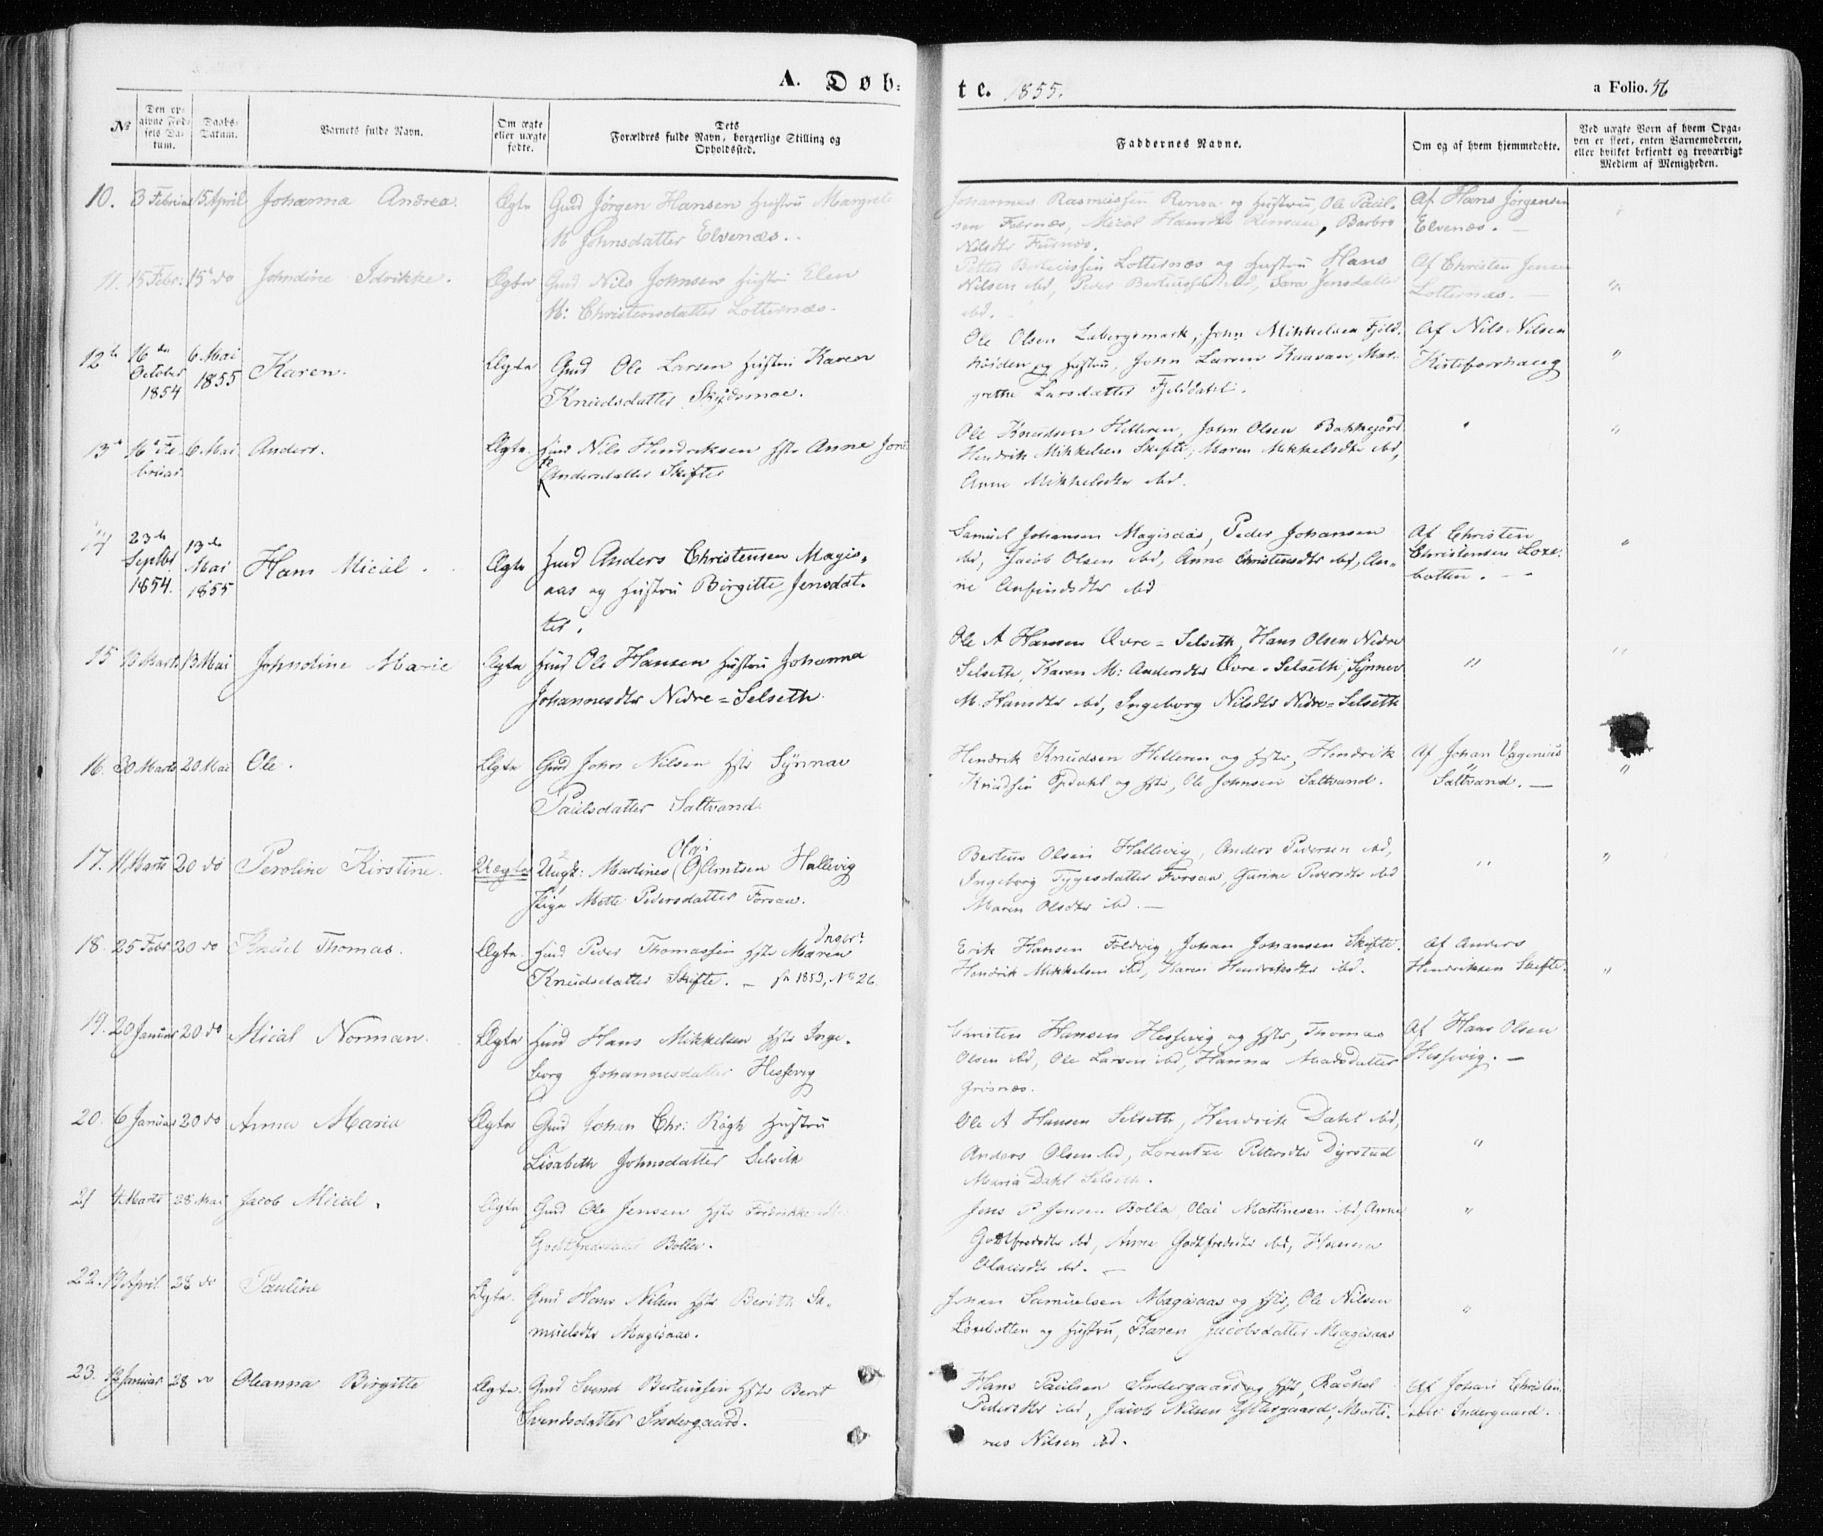 A. Døb:
te. 1855.
a Folio. 56
No
Den op-
givne Fød-
sels Da-
tum.
Daabs-
Datum.
Barnets fulde Navn.
Om ægte
eller uægte
født.
Dets
Forældres fulde Navn, borgerlige Stilling og
Opholdssted.
Faddernes Navne.
Om og af hvem hjemmedøbt.
Ved uægte Børn af hvem Opga-
ven er skeet, enten Barnemoderen,
eller hvilket bekjendt og troværdigt
Medlem af Menigheden.
10. 3 Februar 15 April Johanna Andrea Ægte Gmd Jörgen Hansen Hustru Margrete
M Johnsdatter Elvenæs.
Johannes Rasmussen Rensa og Hustru, Ole Paul-
sen Fusnæs, Barbro
Nilsdtr Fusnæs.
Af Hans Jørgensen
Elvenæs. —
11. 15 Febr: 15 do Johndine Idrikke. Ægte Gmd Nils Johnsen Hustru Elen
M: Christensdatter Lotternæs.
Petter Berteussen Lotternæs og Hustru, Hans
Nilsen ibd, Peder Berteussen ibd, Sara Jensdatter
ibd. —
Af Christen Jensen
Lotternæs. —
12te 16de
October
1854
6. Mai
1855
Karen. Ægte Gmd Ole Larsen Hustru Karen
Knudsdatter Skydsmoe.
Ole Olsen Labergsmark, John Mikkelsen Fjeld-
og Hustru, John Larsen Mar-
grethe Larsdatter Fjelddahl.
Af Nils Nilsen
"
13de 16de Fe-
bruar 6. Mai Anders. Ægte. Huus Nils Hendriksen Hstr Anne
Andersdatter Skifte
Ole Knudsen Helleren, John Olsen Bakkejord
Hendrik Mikkelsen Skifte, Maren Mikkelsdtr ibd,
Anne Mikkelsdtr ibd.
" "
14 23de
Septbr
1854.
13de
Mai
1855
Hans Micael. Ægte Huus Anders Christensen Magis-
aas og Hustru Birgitte Jensdat-
ter.
Samuel Johansen Magisaas, Peder Johansen
ibd, Jacob Olsen ibd, Anne Christensdtr ibd, An-
ne Anfindsdtr ibd
Af Christen
Christensen Loxe-
botten. —
"
15 13 Marts 13 Mai Johndine Marie Ægte Huus Ole Hansen Hustru Johanna
Johannesdtr Nedre-Selseth.
Ole A Hansen Øvre-Selseth, Hans Olsen Nedre
Selseth, Karen M: Andersdtr Øvre-Selseth, Synnev
M. Hansdtr ibd, Ingeborg Nilsdtr Nedre-Selseth
" "
16. 30 Marts 20 Mai Ole. Ægte Gmd John Nilsen Hstr Synnav
Paulsdatter Saltvand.
Hendrik Knudsen Helleren og Hstr, Hendrik
Knudsen Opdahl og Hstr, Ole Johnsen Saltvand.
Af Johan Vagenius
Saltvand. —
"
17. 11 Marts 20 do Peroline Kirstine. Uægte Ungk: Martines (O) Olai Arntsen Hallevig
Pige Mette Pedersdatter Forsaa.
Berteus Olsen Hallevig, Anders Pedersen ibd,
Ingeborg Tygesdatter Forsaa, Gurine Pedersdtr ibd
Maren Olsdtr ibd. —
" "
18. 25 Febr 20 do Knud Thomas. Ægte. Huus Peder Thomassen Hstr Maren Inger?
Knudsdatter Skifte. — fr 1853, No 26.
Erik Hansen Foldvig, Johan Johansen Skifte,
Hendrik Mikkelsen ibd, Karen Hendriksdtr ibd.
Af Anders
Hendriksen Skifte.
"
19. 20 Januar 20 do Micäl Norman. Ægte Huus Hans Mikkelsen Hstr Inge-
borg Johannesdatter Hessevig
Christen Hansen Hessevig og Hstr, Thomas
Olsen ibd, Ole Larsen ibd, Hanna Amdsdatter
Grøsnæs.
Af Hans Olsen
Hessevig. —
20. 6 Januar 20 do Anna Maria Ægte Gmd Johan Chr: Røgh Hustru
Lisabeth Johnsdatter Selseth
Ole A Hansen Selseth, Hendrik Dahl ibd,
Anders Olsen ibd, Lorentze Pettersdtr Dyrstad
Maria Dahl Selseth.
"
21 4 Marts 28 Mai Jacob Micäl. Ægte Gmd Ole Jensen Hstr Fredrikke
Godtfredsdatter Bolla.
Jens P Jensen Bolla, Olai Martinesen ibd, Anne
Godtfredsdtr ibd, Anne Godtfredsdtr ibd, Hanna
Olausdtr ibd. —
"
22. 19 April 28 do Pauline Ægte. Gmd Hans Nilsen Hstr Berith Sa-
muelsdtr Magisaas.
Johan Samuelsen Magisaas og Hstr, Ole Nilsen
Loxebotten og Hustru, Karen Jacobsdatter Magisaas
"
23. 12 Januar 28 do Oleanna Birgitte Ægte. Gmd Svend Berteussen Hstr Berit
Svendsdatter Indergaard.
Hans Paulsen Indergaard og Hstr, Rachel
Pedersdtr ibd, Jacob Nilsen Ystergaard, Marti-
nes Nilsen ibd.
Af Johan Christen-
Indergaard.